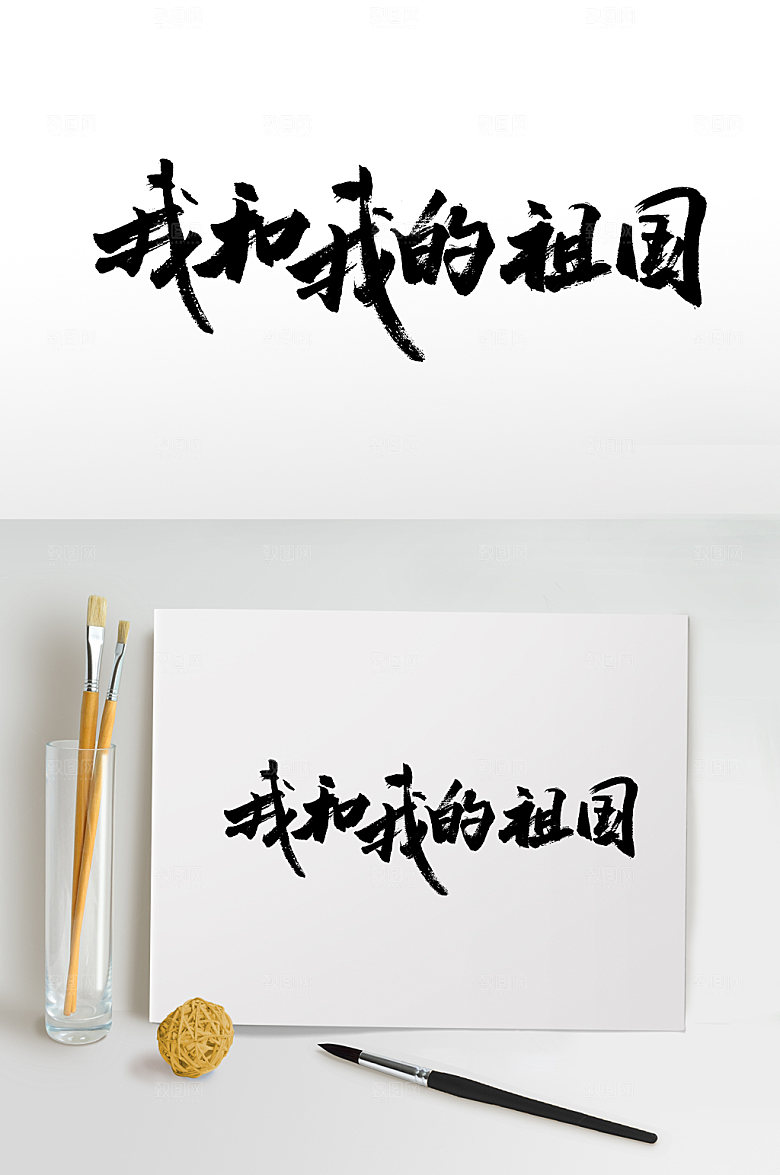 我和我的祖国
我和我的祖国